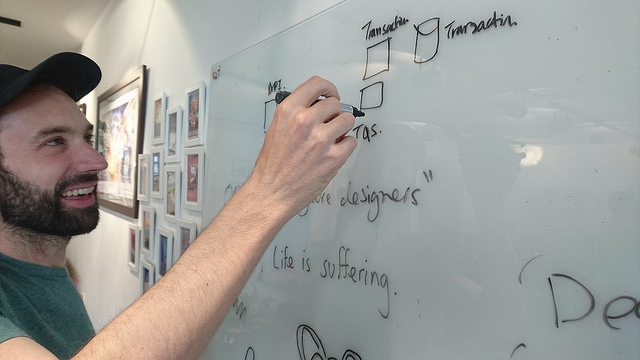 Transaction
Transaction.
API
Tas.
are designers"
Life is suffering.